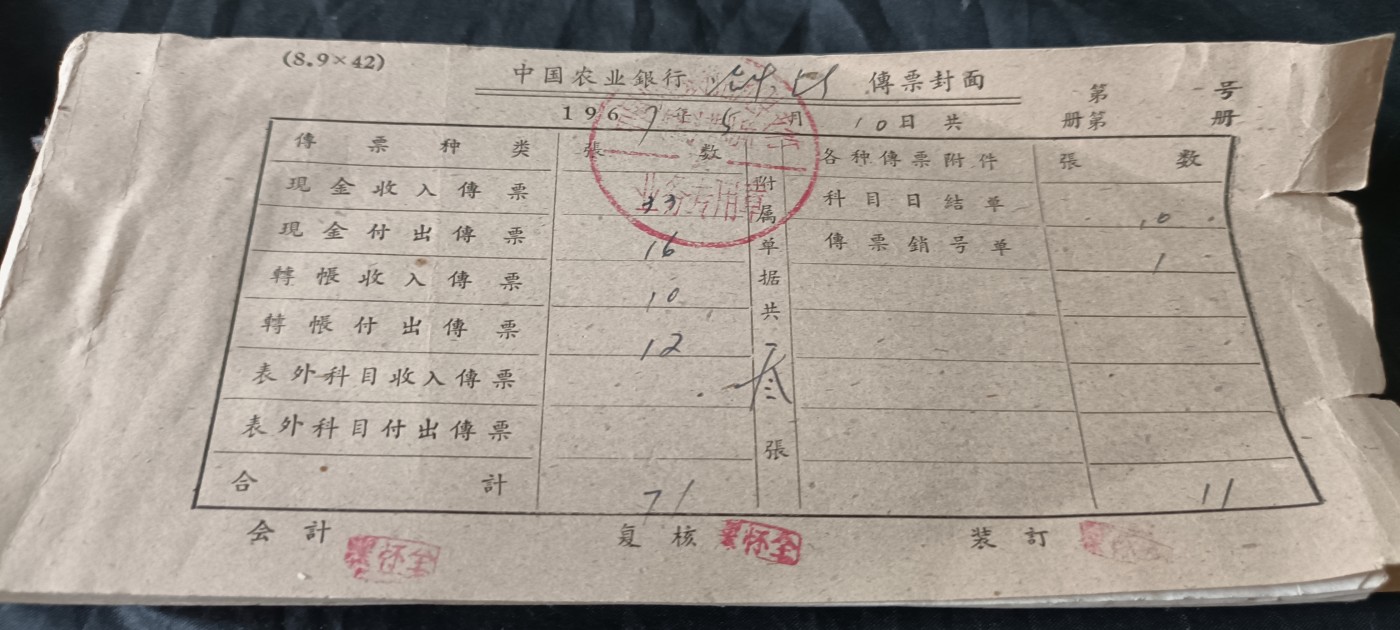 (8.9×42)
中国农业銀行 傳票封面
第 号
1967年5月10日 共 册第 册
傳票种类 張数 附属单据共 張 各种傳票附件 張数
現金收入傳票 33 科目日結单 10
現金付出傳票 16 傳票銷号单 1
轉帳收入傳票 10
轉帳付出傳票 12
表外科目收入傳票
表外科目付出傳票
合計 71 11
业务专用章
会計 复核 装訂
怀全 怀全